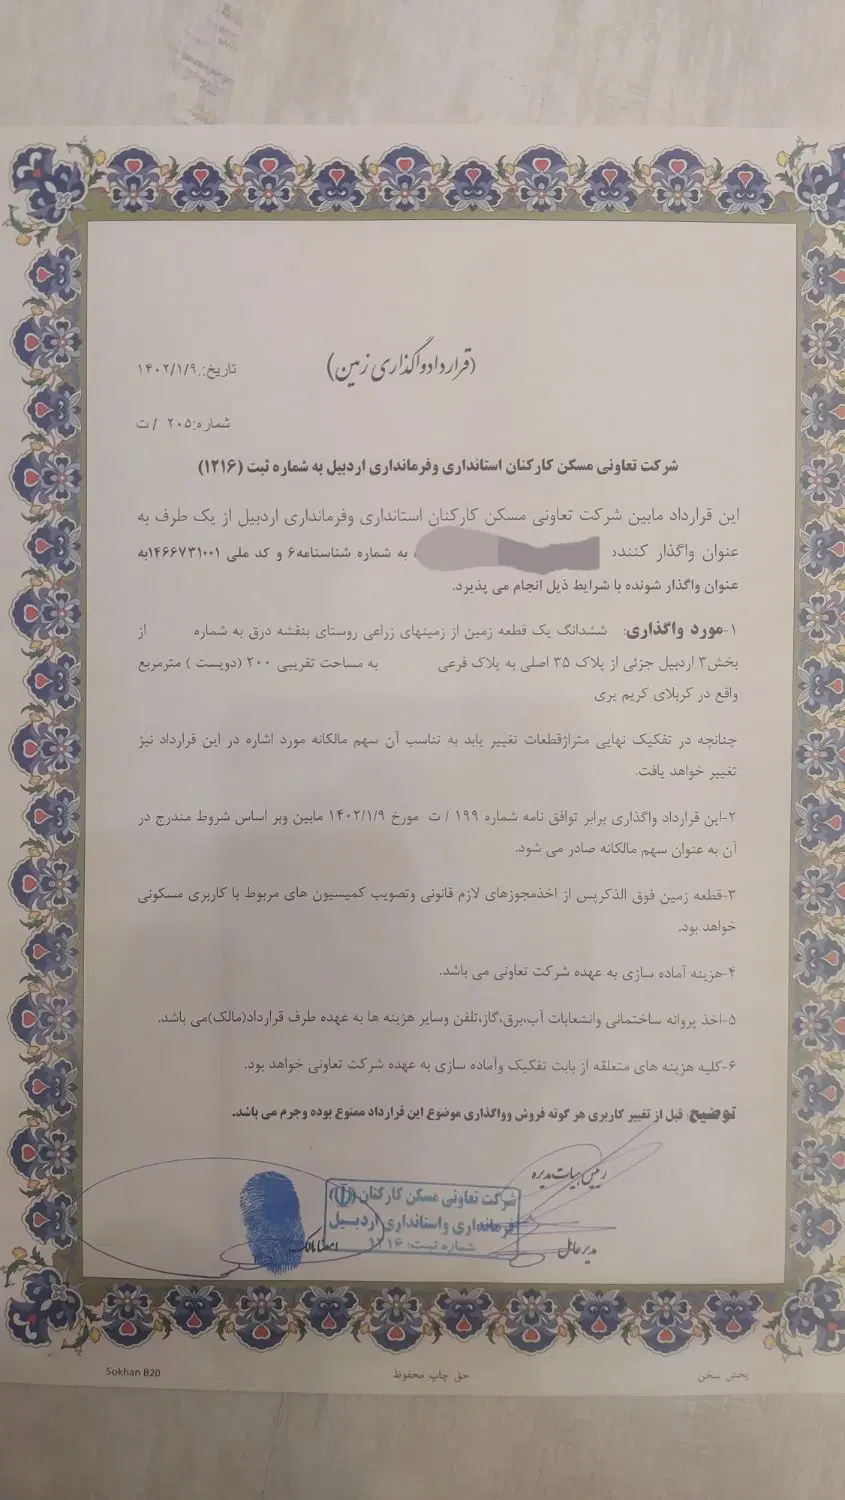 (قرارداد واگذاری زمین)
تاریخ:.۱۴۰۲/۱/۹
شماره:۲۰۵ / ت
شرکت تعاونی مسکن کارکنان استانداری وفرمانداری اردبیل به شماره ثبت (۱۲۱۶)
این قرارداد مابین شرکت تعاونی مسکن کارکنان استانداری وفرمانداری اردبیل از یک طرف به
عنوان واگذار کننده به شماره شناسنامه۶ و کد ملی ۱۴۶۶۷۳۱۰۰۱به
عنوان واگذار شونده با شرایط ذیل انجام می پذیرد.
۱-مورد واگذاری: ششدانگ یک قطعه زمین از زمینهای زراعی روستای بنفشه درق به شماره از
بخش۳ اردبیل جزئی از پلاک ۳۵ اصلی به پلاک فرعی به مساحت تقریبی ۲۰۰ (دویست ) مترمربع
واقع در کربلای کریم یری
چنانچه در تفکیک نهایی متراژقطعات تغییر یابد به تناسب آن سهم مالکانه مورد اشاره در این قرارداد نیز
تغییر خواهد یافت.
۲-این قرارداد واگذاری برابر توافق نامه شماره ۱۹۹ / ت مورخ ۱۴۰۲/۱/۹ مابین وبر اساس شروط مندرج در
آن به عنوان سهم مالکانه صادر می شود.
۳-قطعه زمین فوق الذکرپس از اخذمجوزهای لازم قانونی وتصویب کمیسیون های مربوط با کاربری مسکونی
خواهد بود.
۴-هزینه آماده سازی به عهده شرکت تعاونی می باشد.
۵-اخذ پروانه ساختمانی وانشعابات آب،برق،گاز،تلفن وسایر هزینه ها به عهده طرف قرارداد(مالک)می باشد.
۶-کلیه هزینه های متعلقه از بابت تفکیک وآماده سازی به عهده شرکت تعاونی خواهد بود.
توضیح: قبل از تغییر کاربری هر گونه فروش وواگذاری موضوع این قرارداد ممنوع بوده وجرم می باشد.
رئیس هیات مدیره
شرکت تعاونی مسکن کارکنان
فرمانداری واستانداری اردبیل
شماره ثبت: ۱۲۱۶
مدیر عامل
امضا مالک
Sokhan B20
حق چاپ محفوظ
پخش سخن